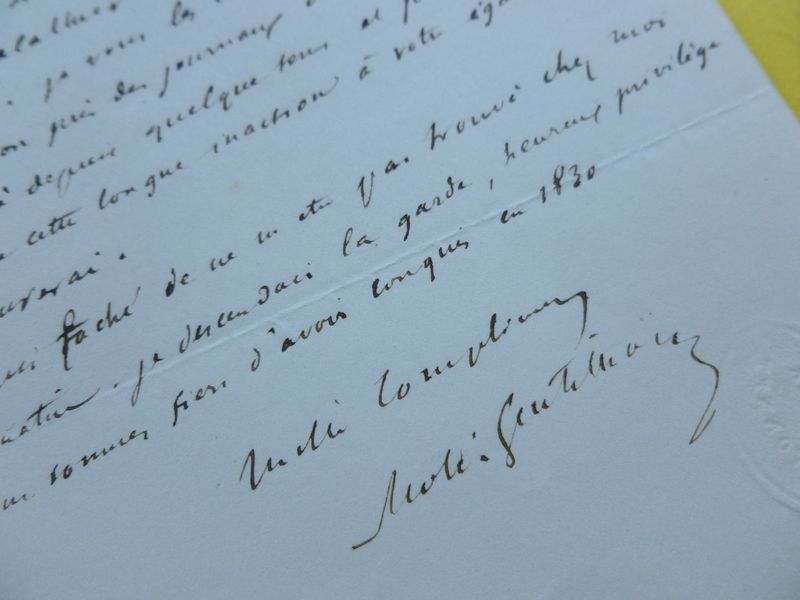 je vous les
près des journaux
depuis quelque tems et je
cette longue inaction à votre éga
fâché de ne m'etre pas trouvé chez moi
je descendais la garde, heureux privilège
sommes fiers d'avoir conquis en 1830
mille Complimens
Molé-Gentilhomme